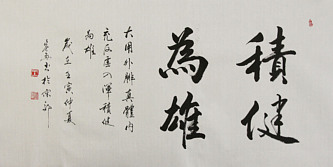 積健
為雄
大用外腓真體內
充反虛入渾積健
為雄
歲在壬寅仲夏